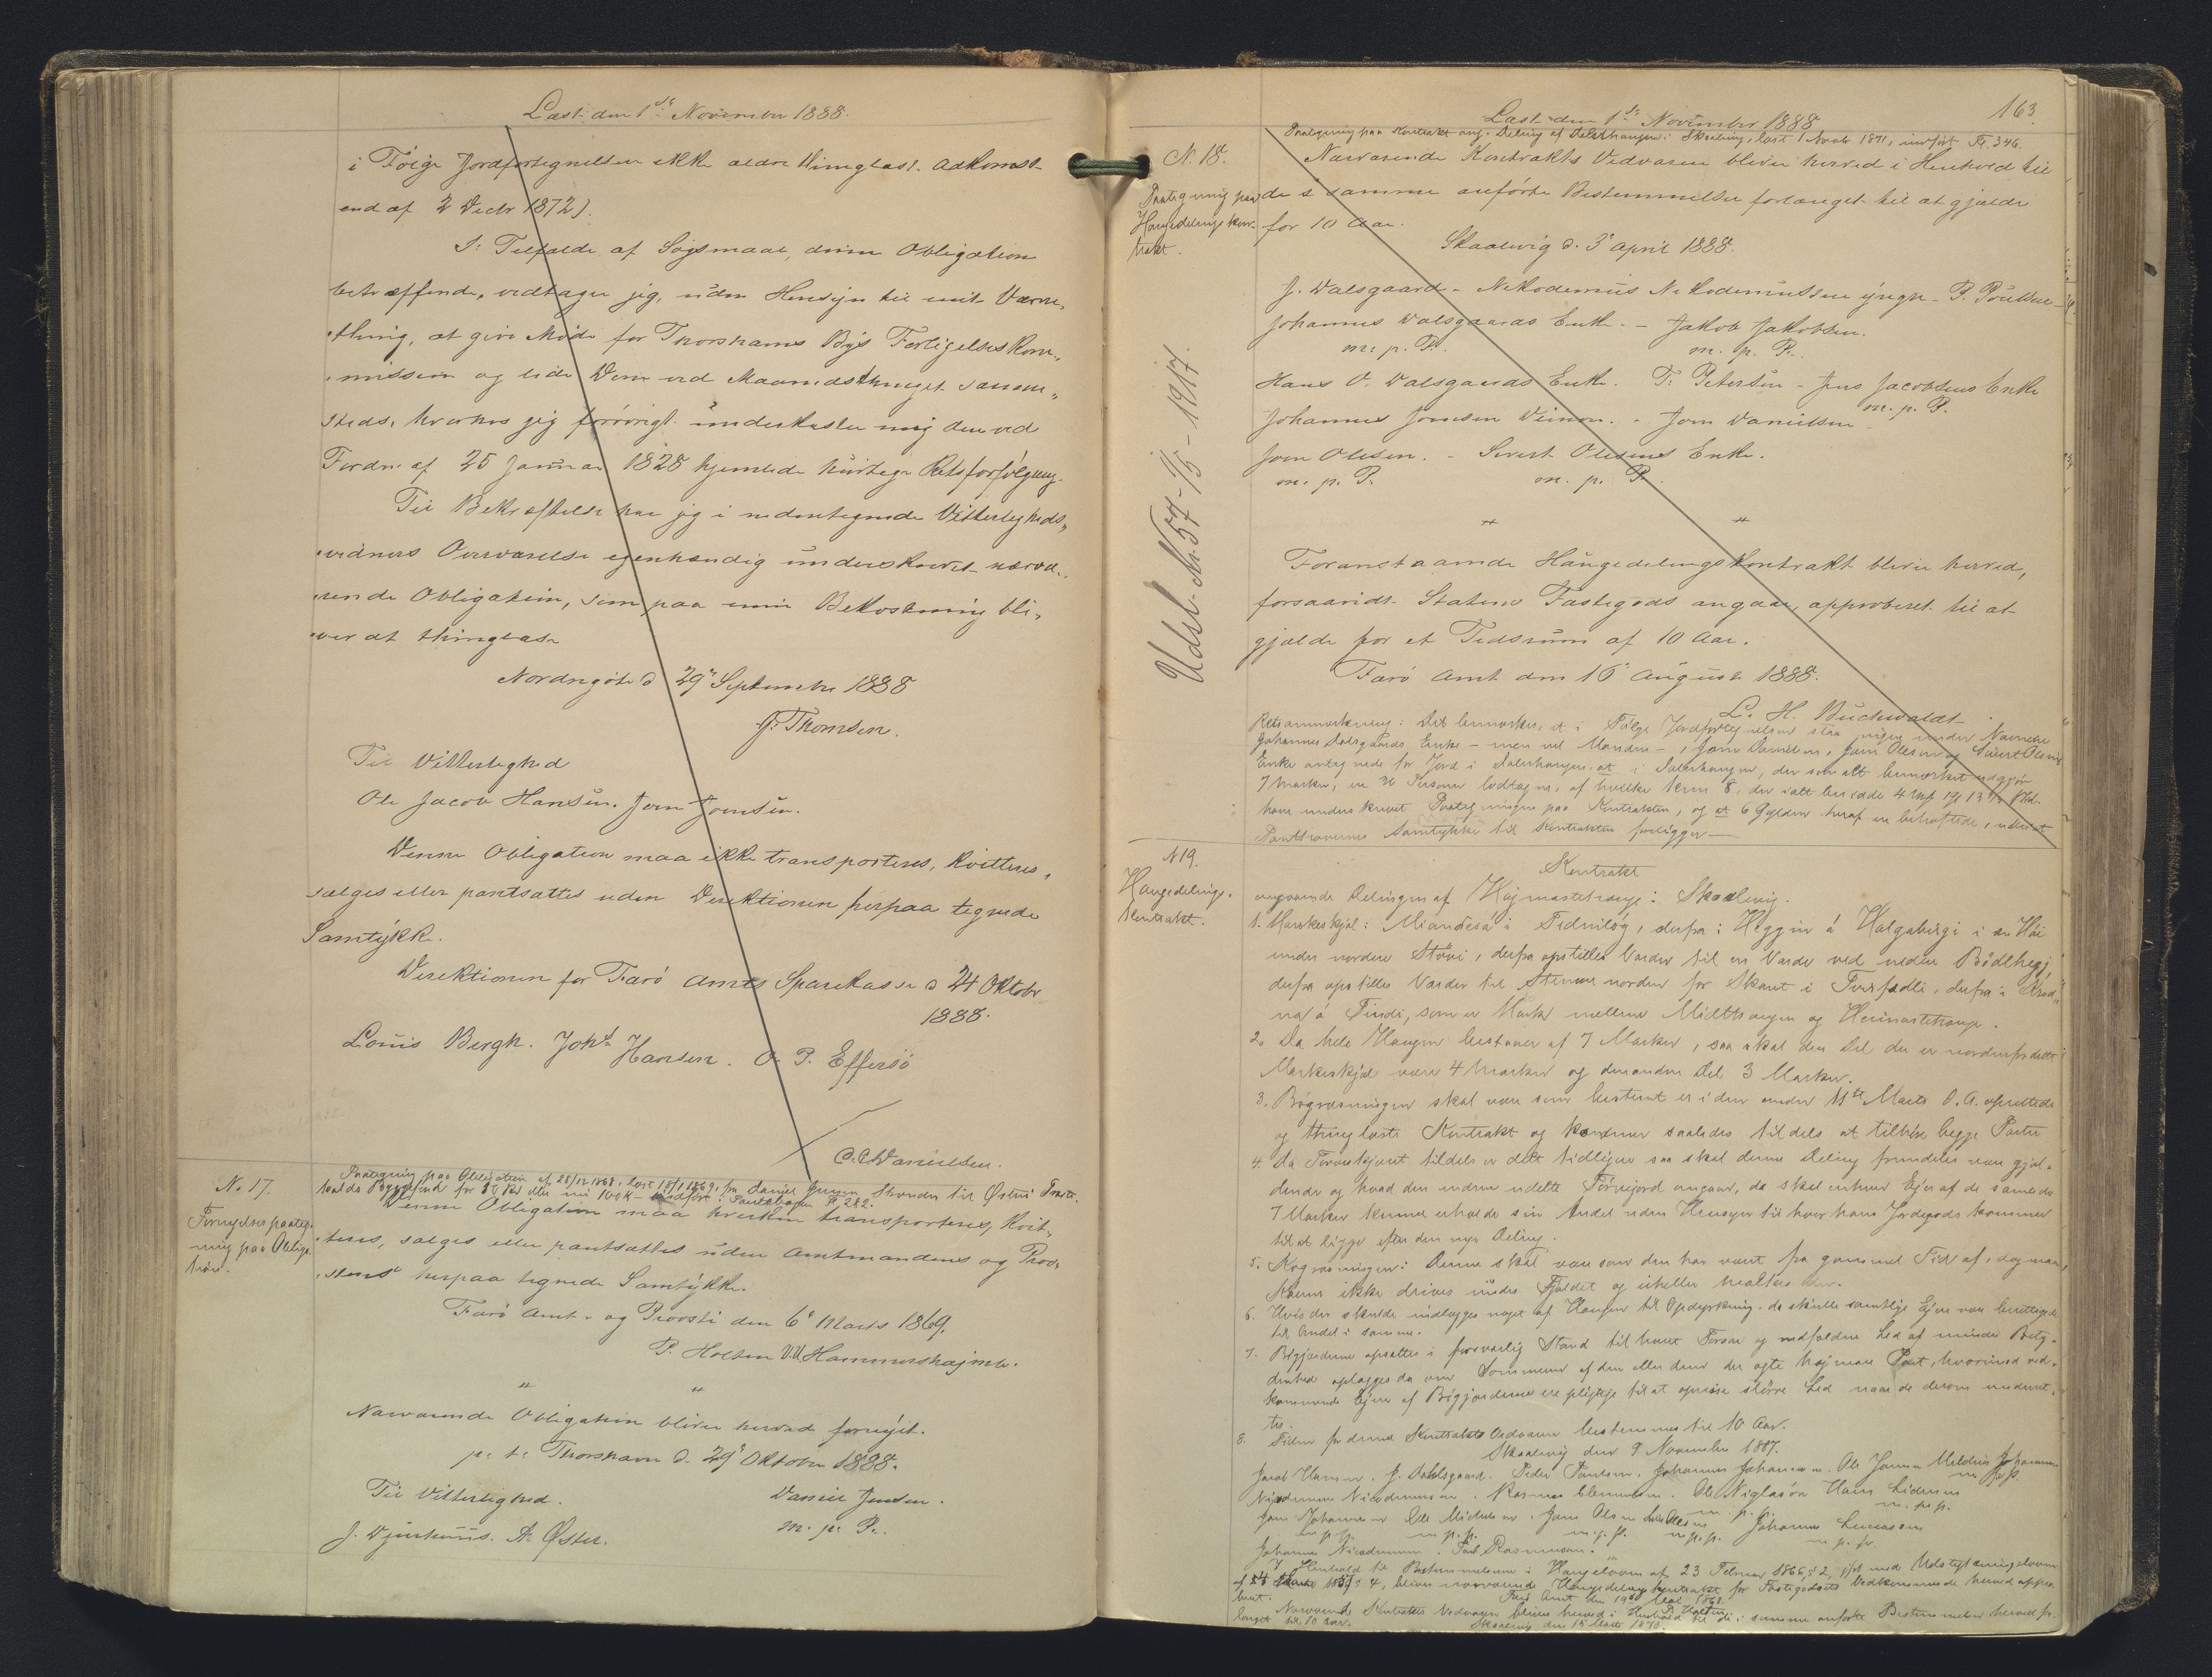 Læst den 1ste November 1888.
i Følge Jordfortegnelsen ikke ældre thinglæst Adkomst
end af 2 Decbr 1872).
I Tilfælde af Søgsmaal, denne Obligation
betræffende, vedtager jeg, uden Hensyn til mit Værne-
thing, at give Møde for Thorshavns Byes Forligelseskom-
mission og lide Dom ved Maanedsthinget samme-
steds, hvorhos jeg forøvrigt underkaster mig den ved
Fordn. af 25 Januar 1828 hjemlede hurtige Retsforfølgning.
Til Bekræftelse har jeg i nedentegnede Vitterligheds-
vidners Overværelse egenhændig underskrevet nærvæ-
rende Obligation, som paa min Bekostning bli-
ver at thinglæse
Nordregøte d 29 September 1888
J. Thomsen.
Til Vitterlighed
Ole Jacob Hansen. Joen Joensen.
Denne Obligation maa ikke transporteres, kvitteres,
sælges eller pantsættes uden Direktionens herpaa tegnede
Samtykke.
Direktionen for Færø Amts Sparekasse d 24 Oktobr
1888.
Louis Bergh. Johs Hansen. O. P. Effersø
C. C. Danielsen.
No 17.
Fornyelsespaateg-
ning paa Obliga-
tion.
Paategning paa Obligation af 28/12 1868, læst 1869, fra Daniel Jensen
Denne Obligation maa hverken transporteres, kvit-
teres, sælges eller pantsættes uden Amtmandens og Prov-
stens herpaa tegnede Samtykke.
Færø Amt og Provsti den 6 Marts 1869.
P. Holten V. U. Hammershaimb.
" "
Nærværende Obligation bliver herved fornyet.
p. t. Thorshavn d. 29 Oktober 1888.
Til Vitterlighed. Daniel Jensen.
J. Djurhuus. A. Øster. m. p. P.
163
Læst den 1ste November 1888
N. 18.
Paategning paa
Haugedelingskon-
trakt.
Udsl. Nr. 57 - 1/5 - 1917.
Paategning paa Kontrakt ang. Deling af Dalshaugen i Skaalevig, læst 1871, indført Fo. 346.
Nærværende Kontrakts Vedvaren bliver herved i Henhold til
de i samme anførte Bestemmelser forlænget til at gjælde
for 10 Aar.
Skaalevig d. 3 April 1888.
J. Dalsgaard - Nikodemus Nikodemussen yngre - P. Poulsen -
Johannes Dalsgaards Enke. - Jakob Jakobsen.
m. p. P. m. p. P.
Hans O. Dalsgaards Enke. T. Petersen - Jens Jacobsens Enke
m. p. P.
Johannes Joensen Veimon. - Joen Danielsen -
Joen Olesen. - Sivert Olesens Enke.
m. p. P. m. p. P.
" "
Foranstaaende Haugedelingskontrakt bliver herved,
forsaavidt Statens Fæstegods angaar, approberet til at
gjælde for et Tidsrum af 10 Aar.
Færø Amt den 16 August 1888.
L. H. Buchwaldt
Retsanmærkning: Det bemærkes, at i Følge Jordfortegnelsen staa ingen under Navnene
Johannes Dalsgaards Enke - men vel Manden -, Joen Danielsen, Joen Olesen og Sivert Olesens
Enke antegnede for Jord i Dalshaugen, at i Dalshaugen, der som alt bemærket udgjør
7 Marker, ere Personer lodtagne, af hvilke kun 8, der i alt besidde 4 Mk
have underskrevet Paategningen paa Kontrakten, og at 6 Gylden heraf ere behæftede, uden at
Panthavernes Samtykke til Kontrakten foreligger.
N 19.
Haugedelings-
kontrakt.
Kontrakt
angaaende Delingen af Høgmastehauge i Skaalevig.
1. Markeskjel: Miandesá i Tidniløg, derfra i Heggin á Halgabirgi i en Hái
under nordere Støvi, derfra opstilles Varder til en Varde ved nedre Bødlhegj,
derfra opstilles Varder til Stenene norden for Skaret i Tverfjedli, derfra i
na á Tindi, som er Marke mellem Midthaugen og Heimastehauge.
2. Da hele Haugen bestaaer af 7 Marker, saa skal den Del der er nordenfor dette
Markeskjel være 4 Marker og den anden Del 3 Marker.
3. Bøgræsningen skal være som bestemt er i den under 11te Marts D. A. oprettede
og thinglæste Kontrakt og kommer saaledes tildels at tilhøre begge Parter
4. Da Tørveskjæret tildels er delt tidligere saa skal denne Deling fremdeles være gjæl-
dende og hvad den endnu udelte Tørvejord angaar, da skal enhver Ejer af de samlede
7 Marker kunne erholde sin Andel uden Hensyn til hvor hans Jordegods kommer
til at ligge efter den nye Deling.
5. Kogræsningen: Denne skal være som den har været fra gammel Tid af, dog maa
Køerne ikke drives under Fjældet og ikheller malkes der.
6. Hvis der skulde indlægges noget af Haugen til Opdyrkning, da skulle samtlige Ejere være berettigede
til Andel i samme.
7. Bøgjærderne opsættes i forsvarlig Stand til hvert Foraar og nedfaldne Led af mindre Betyd-
denhed oplægges da om Sommeren af den eller dem der ejer højmare Part, hvorimod ved-
kommende Ejere af Bøgjærderne ere pligtige til at opreise større Led naar de derom underret-
tes.
8. Tiden for denne Kontrakts Vedvaren bestemmes til 10 Aar.
Skaalevig den 9 November 1887.
Jacob Hansen. J. Dahlsgaard. Peder Poulsen. Johannes Johannesen. Ole Jonsen
Nicodemus Nicodemussen. Rasmus Clementsen. Ole Niglasøn Hans Lidersen
Joen Johannesen Ole Mickelsen. Joen Olsen Johannes Lucassen
m. p. p. m. p. p. m. p. p. m. p. p.
Johannes Nicodemussen. Poul Rasmussen.
I Henhold til Bestemmelserne i Haugeloven af 23 Februar 1866 § 2, jfrt med Udstykningsloven
4, bliver nærværende Haugedelingskontrakt for Fæstegodsets Vedkommende herved appro-
beret. Færø Amt den 19 Mai 1868.
P. Holten
Nærværende Kontrakts Vedvaren bliver herved i Henhold til de i samme anførte Bestemmelser herved for-
længet til 10 Aar. Skaalevig den 15 Marts 1878.